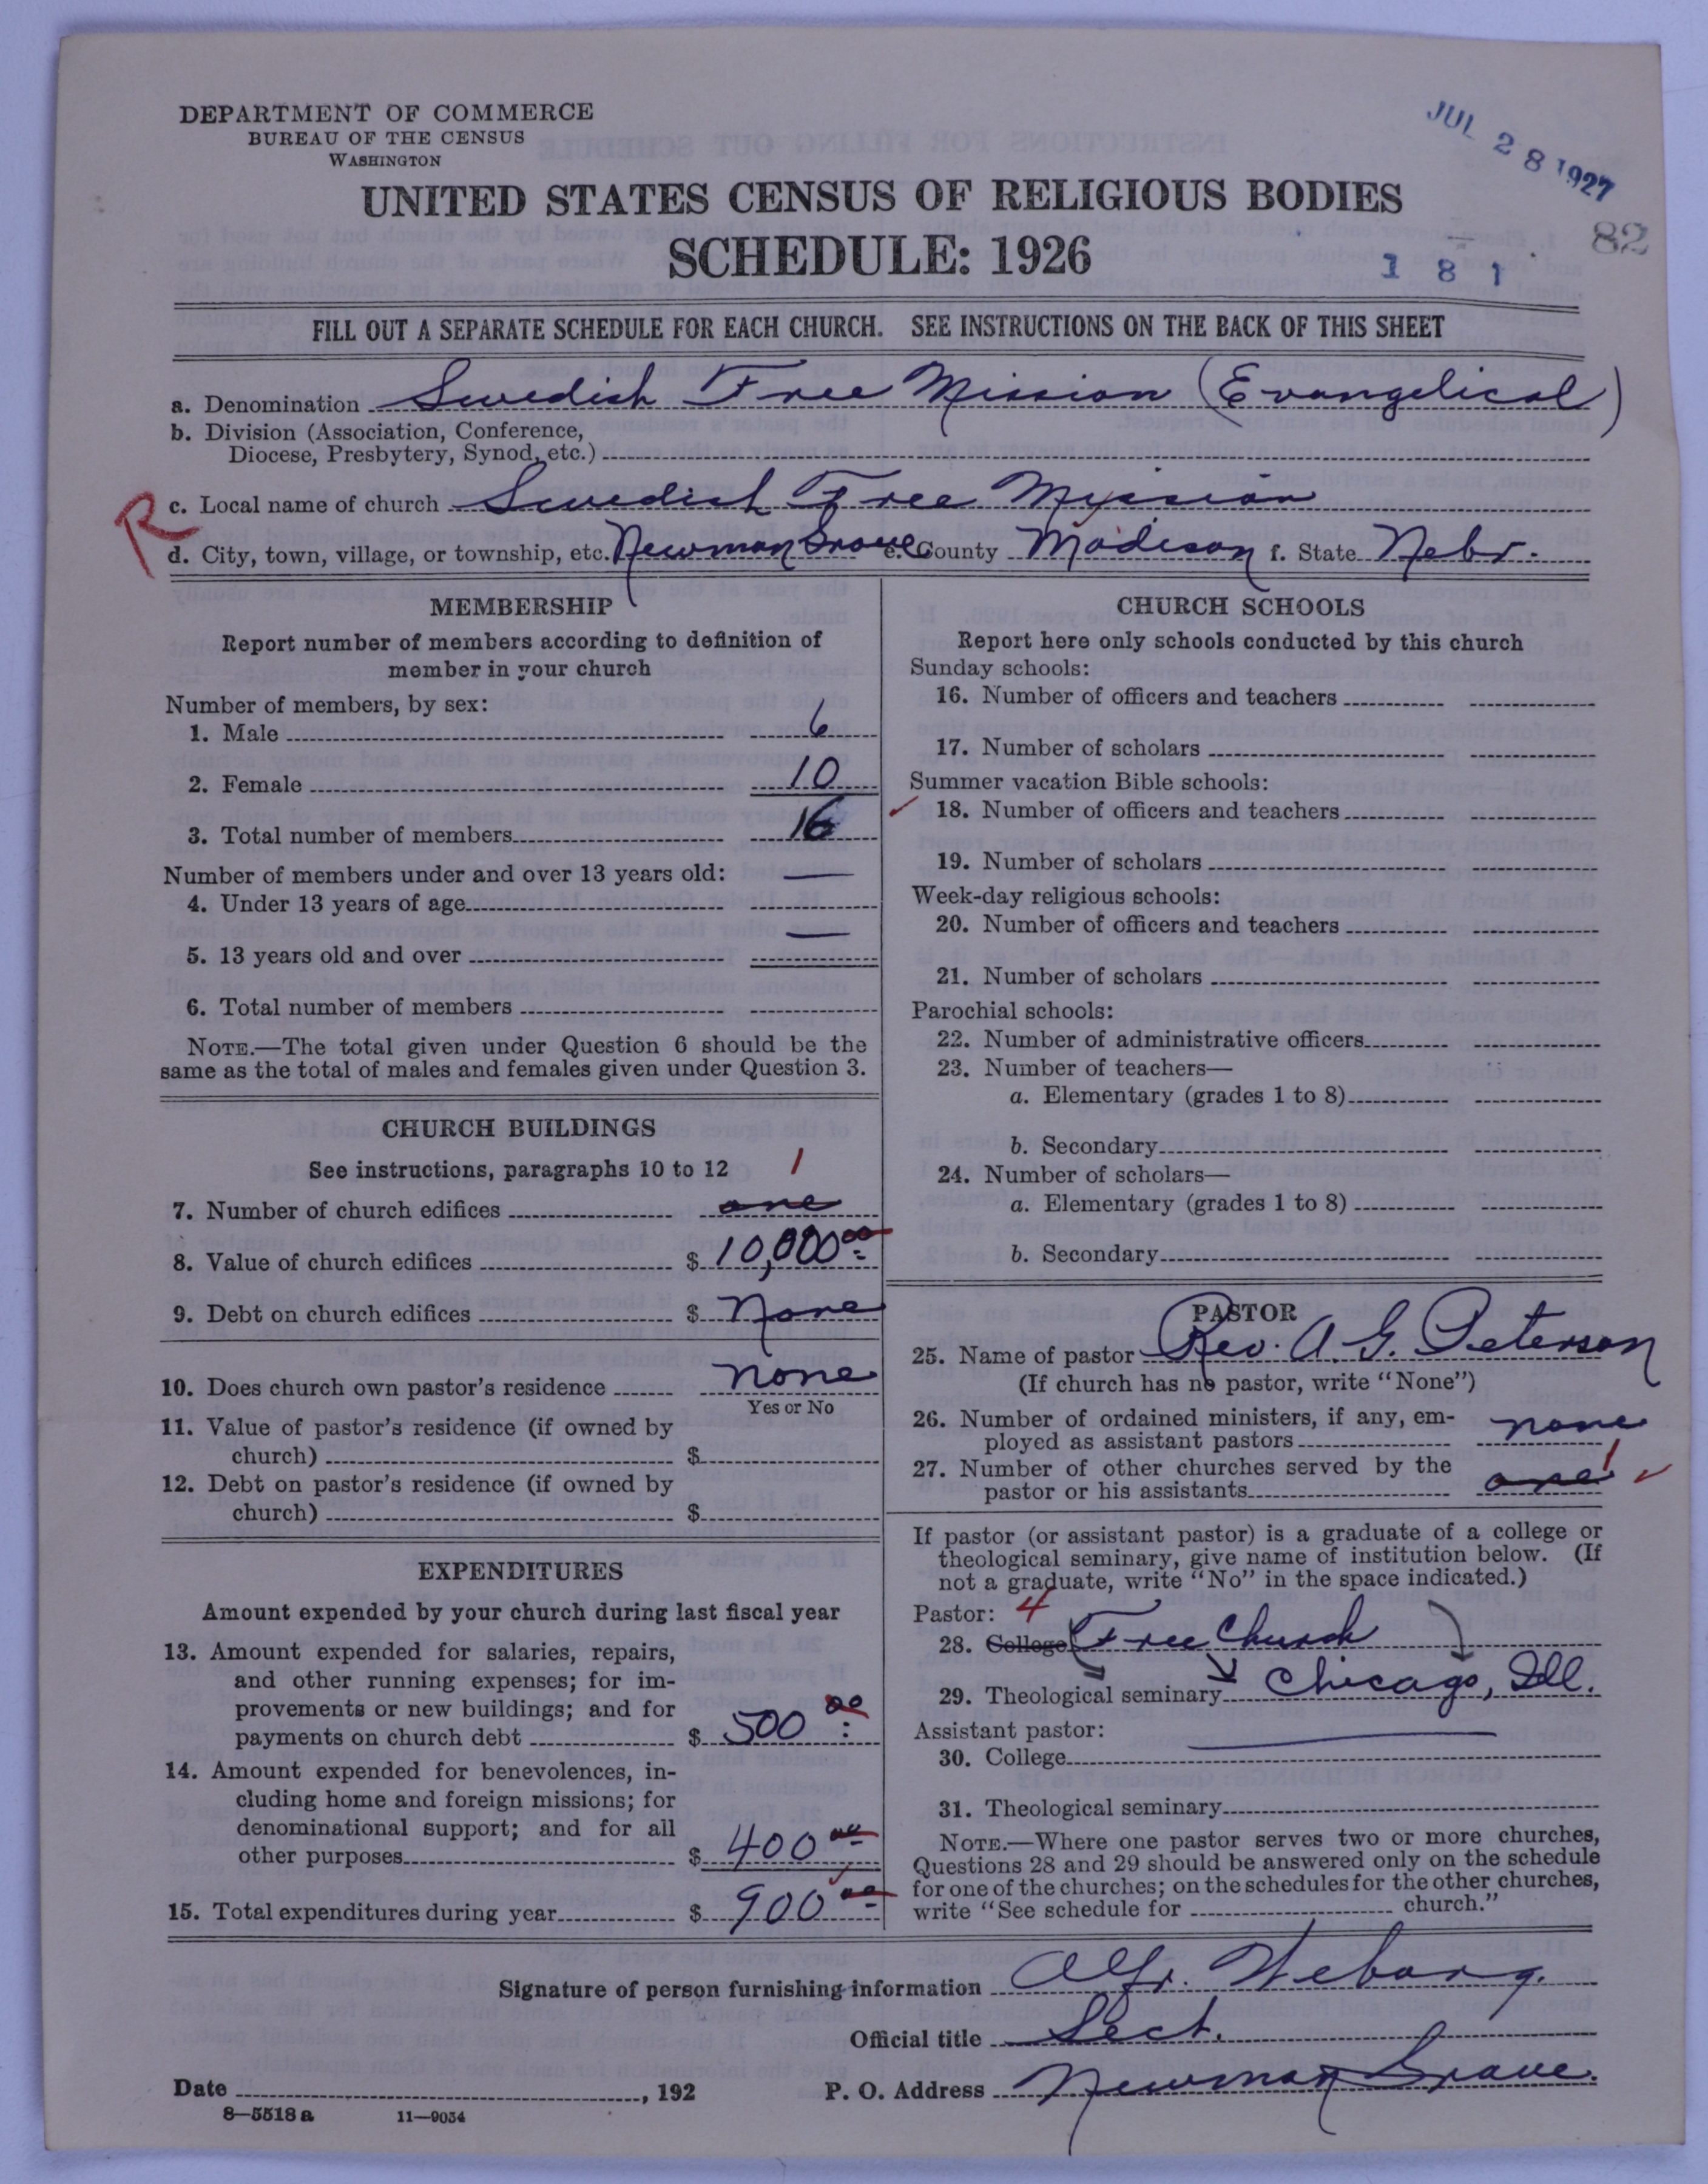 DEPARTMENT OF COMMERCE
BUREAU OF THE CENSUS
WASHINGTON
JUL 28 1927
82
UNITED STATES CENSUS OF RELIGIOUS BODIES
SCHEDULE: 1926
1 8 1
FILL OUT A SEPARATE SCHEDULE FOR EACH CHURCH. SEE INSTRUCTIONS ON THE BACK OF THIS SHEET
a. Denomination Swedish Free Mission (Evangelical)
b. Division (Association, Conference,
Diocese, Presbytery, Synod, etc.)
R
c. Local name of church Swedish Free Mission
d. City, town, village, or township, etc. Newman Grove e. County Madison f. State Nebr.
MEMBERSHIP
Report number of members according to definition of
member in your church
Number of members, by sex:
1. Male 6
2. Female 10
3. Total number of members 16
Number of members under and over 13 years old: —
4. Under 13 years of age
—
5. 13 years old and over
6. Total number of members
NOTE.—The total given under Question 6 should be the
same as the total of males and females given under Question 3.
CHURCH BUILDINGS
See instructions, paragraphs 10 to 12 1
7. Number of church edifices one
8. Value of church edifices $ 10,000 00
9. Debt on church edifices $ None
10. Does church own pastor's residence none
Yes or No
11. Value of pastor's residence (if owned by
church) $
12. Debt on pastor's residence (if owned by
church) $
EXPENDITURES
Amount expended by your church during last fiscal year
13. Amount expended for salaries, repairs,
and other running expenses; for im-
provements or new buildings; and for
payments on church debt $ 500 00
14. Amount expended for benevolences, in-
cluding home and foreign missions; for
denominational support; and for all
other purposes $ 400 00
15. Total expenditures during year $ 900 00
CHURCH SCHOOLS
Report here only schools conducted by this church
Sunday schools:
16. Number of officers and teachers
17. Number of scholars
Summer vacation Bible schools:
✓ 18. Number of officers and teachers
19. Number of scholars
Week-day religious schools:
20. Number of officers and teachers
21. Number of scholars
Parochial schools:
22. Number of administrative officers
23. Number of teachers—
a. Elementary (grades 1 to 8)
b. Secondary
24. Number of scholars—
a. Elementary (grades 1 to 8)
b. Secondary
PASTOR
25. Name of pastor Rev. A. G. Peterson
(If church has no pastor, write "None")
26. Number of ordained ministers, if any, em-
ployed as assistant pastors none
27. Number of other churches served by the
pastor or his assistants one 1 ✓
If pastor (or assistant pastor) is a graduate of a college or
theological seminary, give name of institution below. (If
not a graduate, write "No" in the space indicated.)
Pastor: 4
28. College Free Church
29. Theological seminary Chicago, Ill.
Assistant pastor:
30. College
31. Theological seminary
NOTE.—Where one pastor serves two or more churches,
Questions 28 and 29 should be answered only on the schedule
for one of the churches; on the schedules for the other churches,
write "See schedule for church."
Signature of person furnishing information Alfr. Weborg.
Official title Sect.
Date , 192 P. O. Address Newman Grove.
8—5518 a 11—9034